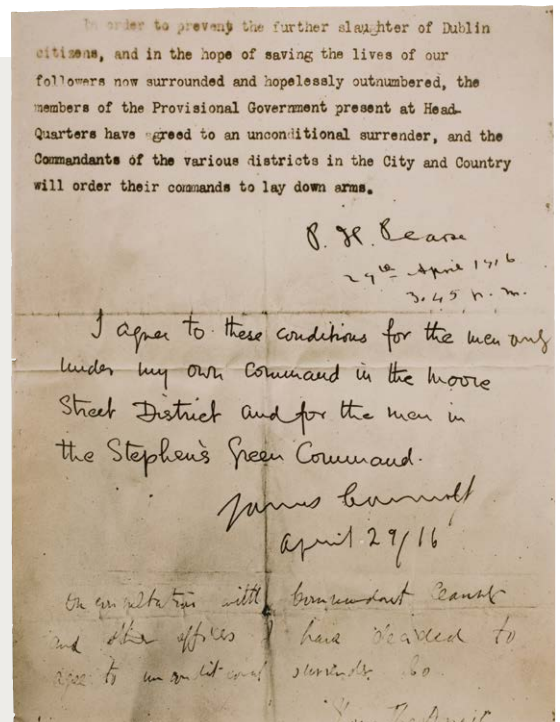 In order to prevent the further slaughter of Dublin
citizens, and in the hope of saving the lives of our
followers now surrounded and hopelessly outnumbered, the
members of the Provisional Government present at Head-
Quarters have agreed to an unconditional surrender, and the
Commandants of the various districts in the City and Country
will order their commands to lay down arms.
P. H. Pearse
29th April 1916
3.45 p.m.
I agree to these conditions for the men only
under my own Command in the Moore
Street District and for the men in
the Stephen's Green Command.
James Connolly
April 29/16
On consultation with Commandant Ceannt
and other officers I have decided to
agree to unconditional surrender